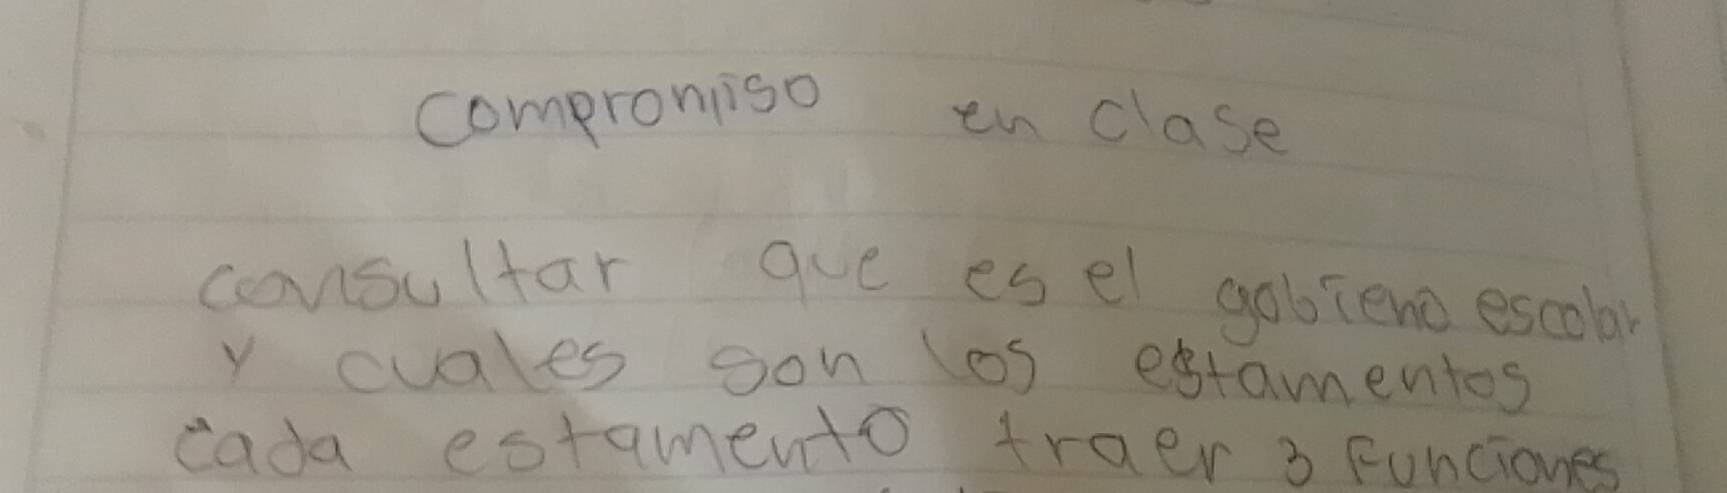 compromiso en clase
consultar que es el gobieno escolar
y cuales son los estamentos
cada estamento traer 3 funciones